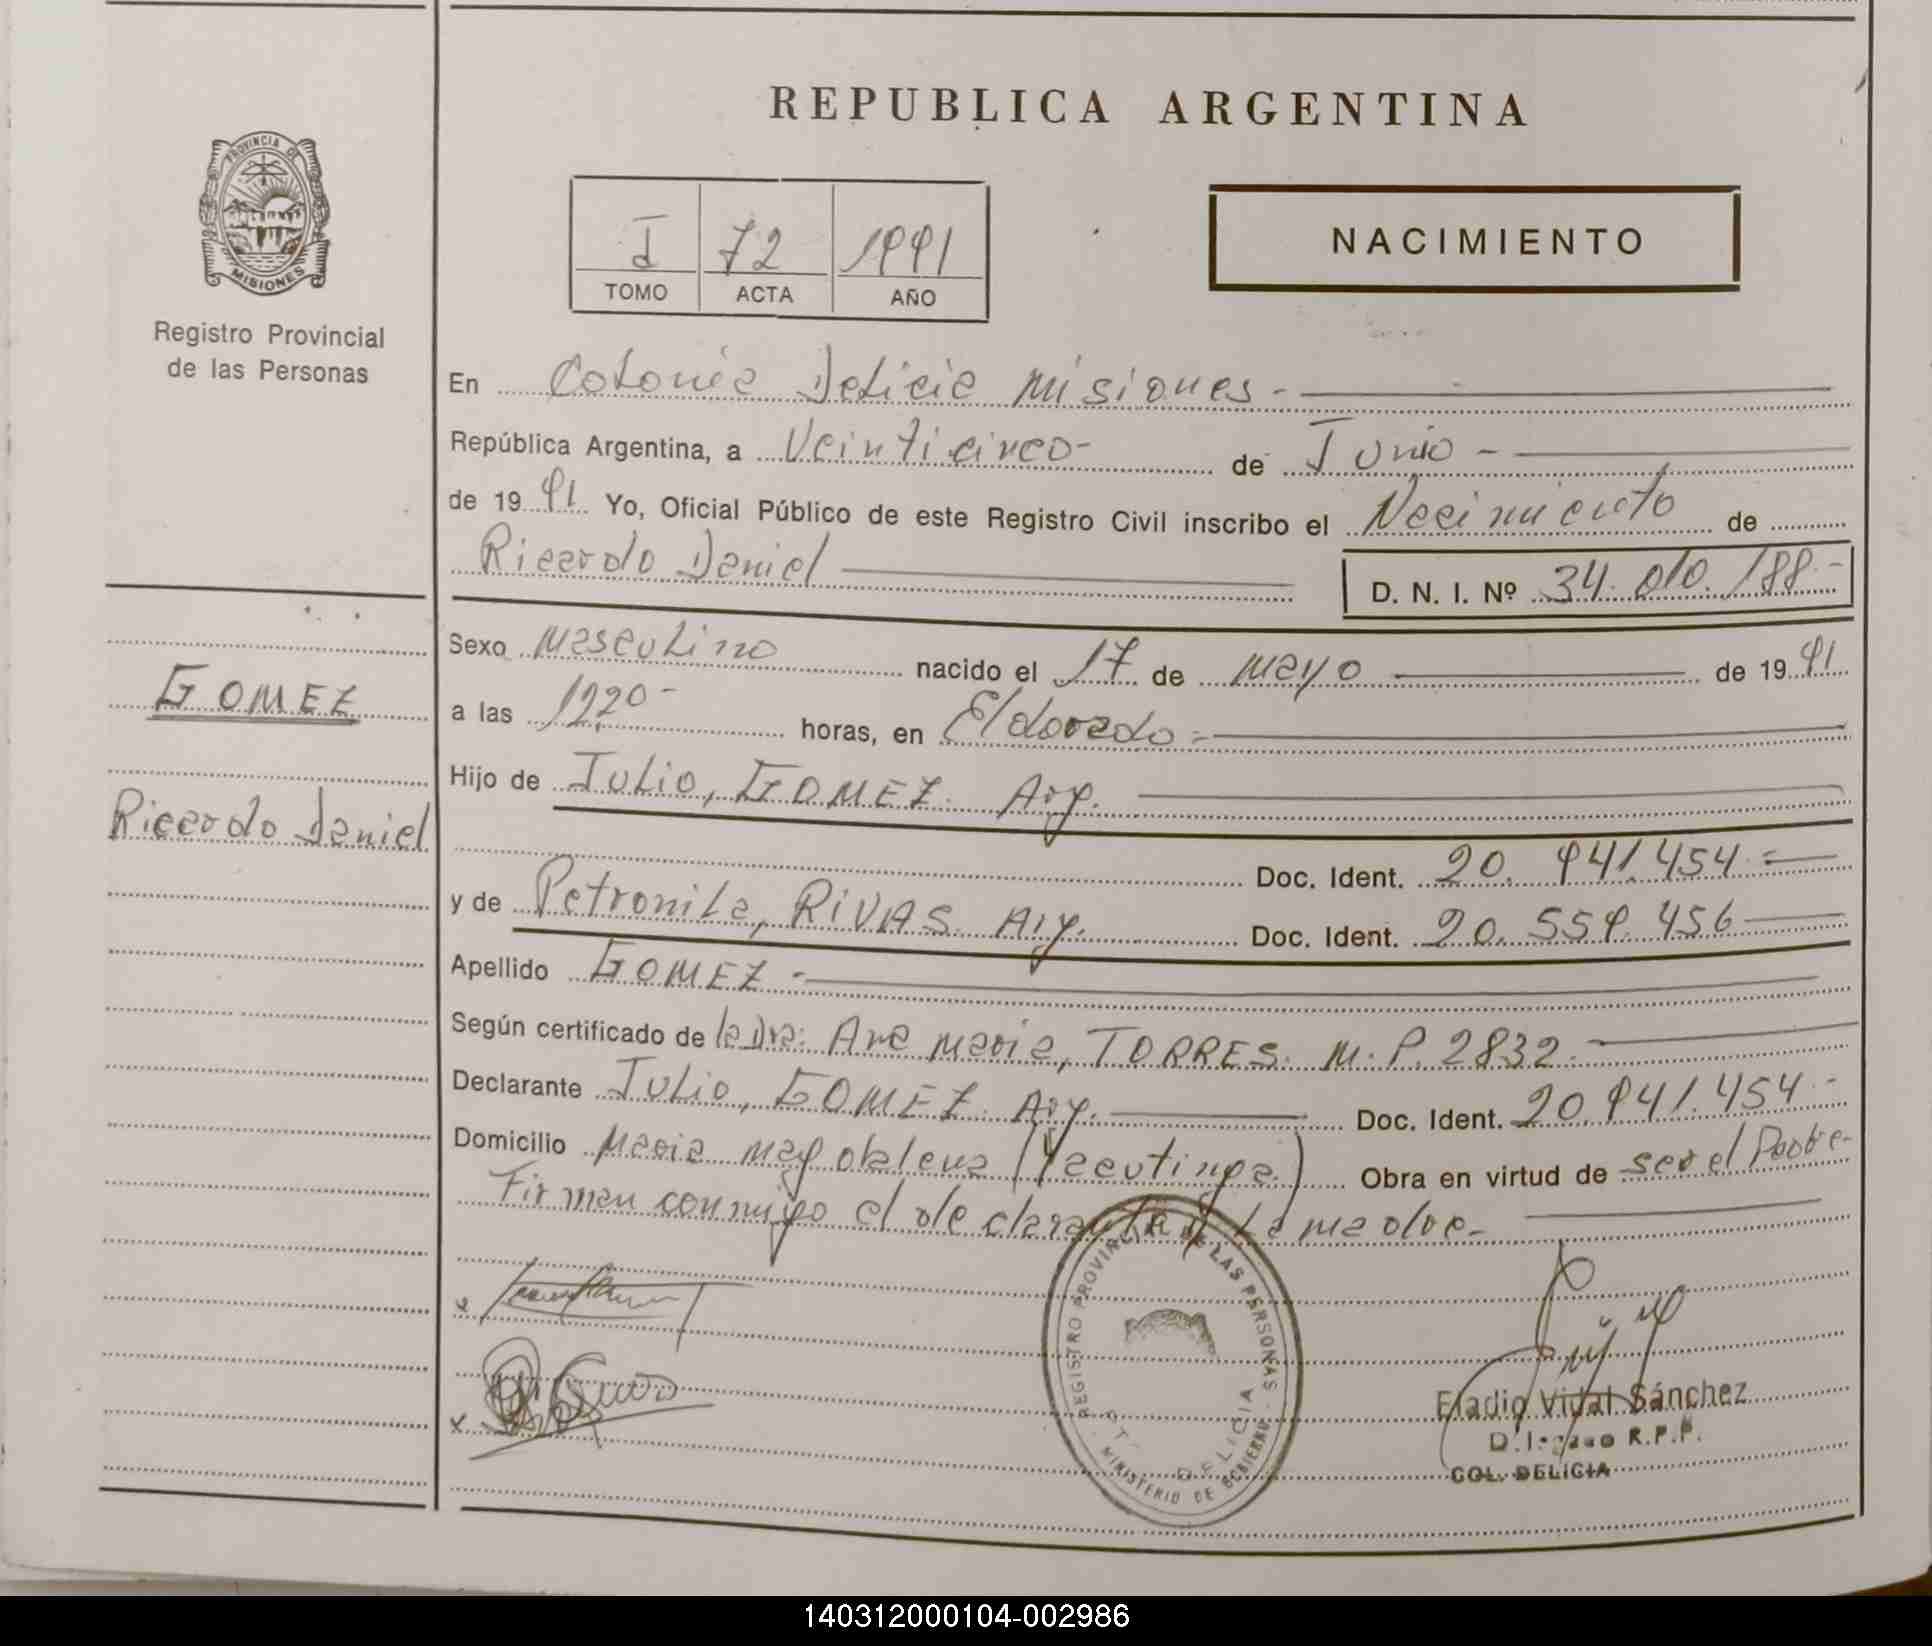 REPUBLICA ARGENTINA
PROVINCIA DE
MISIONES
Registro Provincial
de las Personas
I 72 1991
TOMO ACTA AÑO
NACIMIENTO
En Colonia Delicia Misiones.-
República Argentina, a Veinticinco- de Junio -
de 1991 Yo, Oficial Público de este Registro Civil inscribo el Nacimiento de
Ricardo Daniel D. N. I. Nº 34.010.188.-
Sexo Masculino nacido el 17 de Mayo de 1991
GOMEZ
a las 1220- horas, en Eldorado.-
Hijo de Julio, GOMEZ. Arg.
Ricardo Daniel
Doc. Ident. 20.941.454.-
y de Petronila, RIVAS. Arg. Doc. Ident. 20.559.456
Apellido GOMEZ.-
Según certificado de la Dra: Ana Maria, TORRES. M.P. 2832.-
Declarante Julio, GOMEZ. Arg. Doc. Ident. 20.941.454.-
Domicilio Maria Magdalena (Yacutinga.) Obra en virtud de ser el Padre-
Firman conmigo el declarante y La madre.-
REGISTRO PROVINCIAL DE LAS PERSONAS
DELICIA
MINISTERIO DE GOBIERNO
Eladio Vidal Sánchez
R.P.P.
COL. DELICIA
140312000104-002986